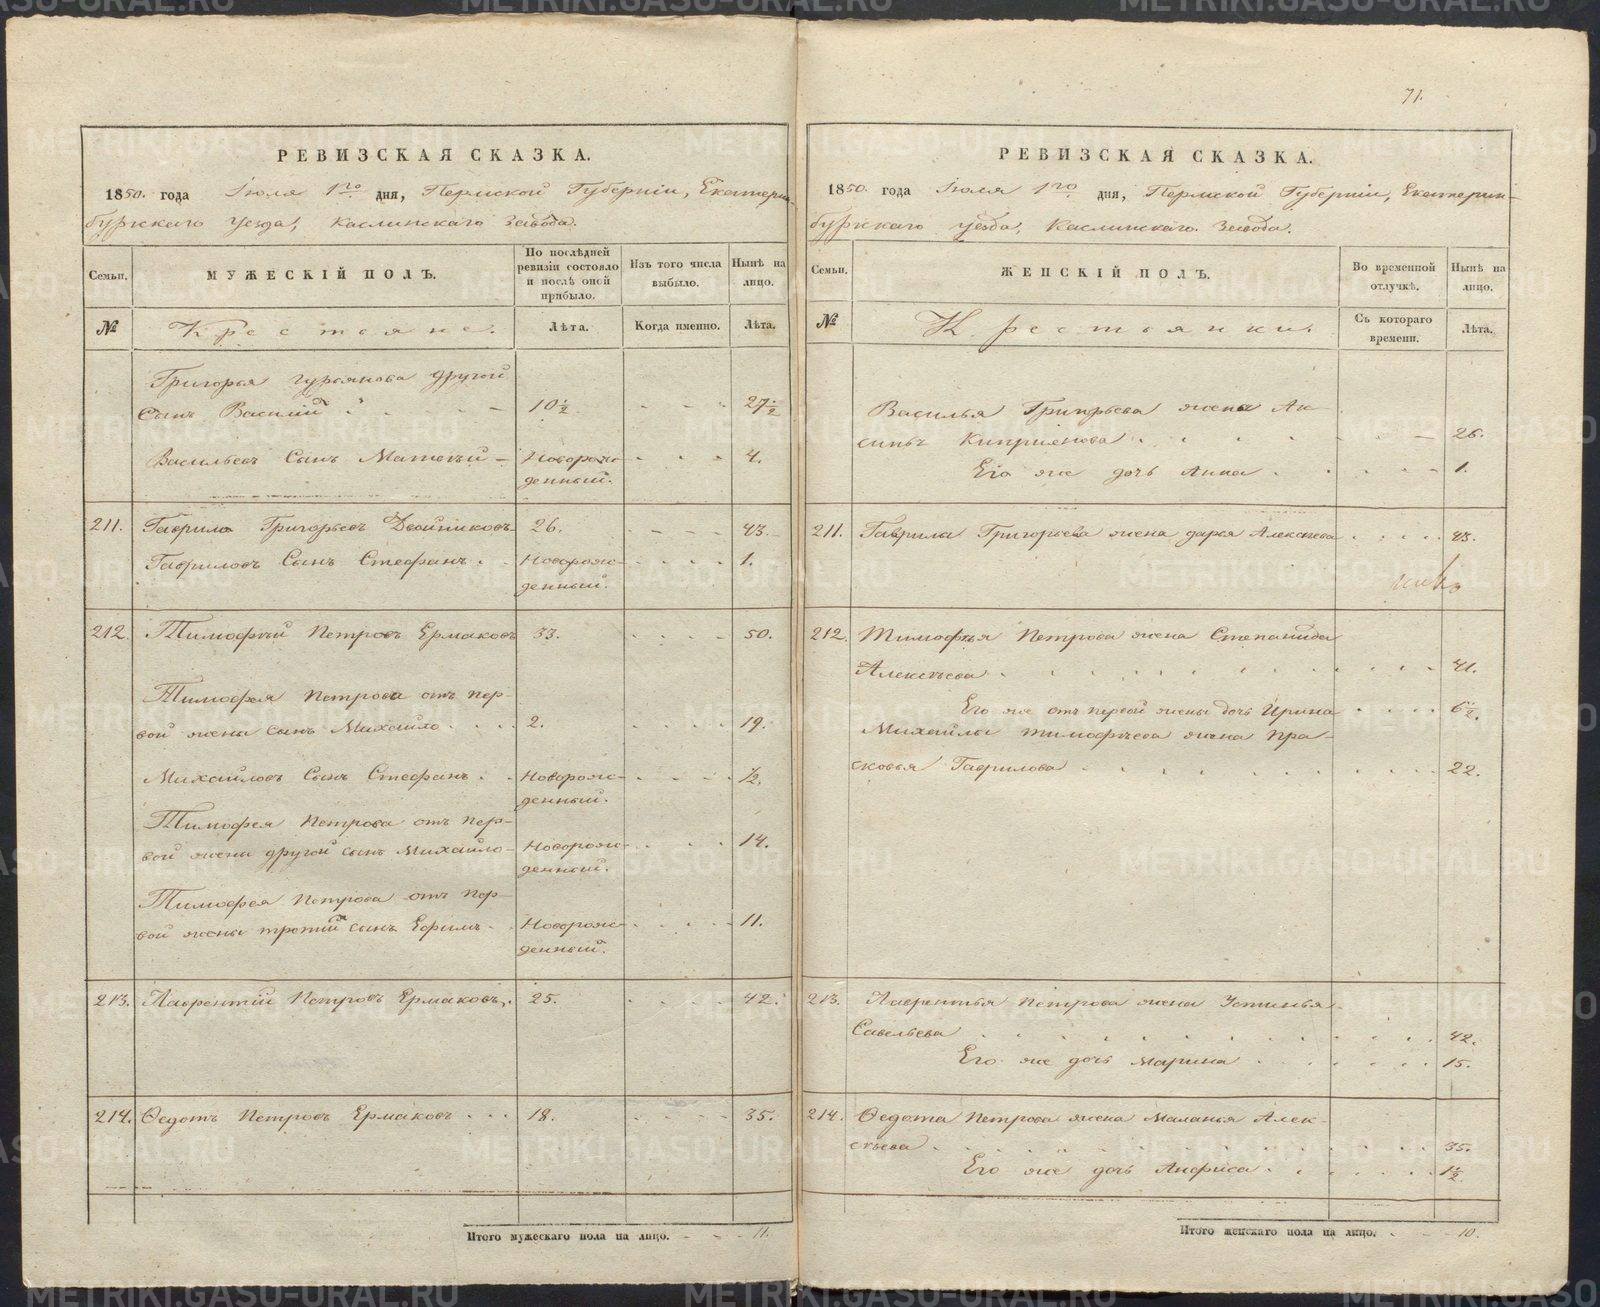 71.
РЕВИЗСКАЯ СКАЗКА.
1850. года Іюля 1го дня, Пермской Губерніи, Екатерин-
бургскаго уезда, Каслинскаго Завода.
Семьи.
МУЖЕСКІЙ ПОЛЪ.
По послѣдней ревизіи состояло и послѣ оной прибыло.
Изъ того числа выбыло.
Нынѣ на лицо.
№
Крестьяне.
Лѣта.
Когда именно.
Лѣта.
Григорья Гурьянова другой
сынъ Василій 10½ 27½
Васильевъ Сынъ Матвѣй Новорож- 4.
денный.
211. Гаврило Григорьевъ Двойниковъ 26. 43.
Гавриловъ Сынъ Стефанъ Новорож- 1.
денный.
212. Тимофѣй Петровъ Ермаковъ 33. 50.
Тимофея Петрова отъ пер-
вой жены сынъ Михайло 2. 19.
Михайловъ Сынъ Стефанъ Новорож- ½.
денный.
Тимофея Петрова отъ пер-
вой жены другой сынъ Михайло Новорож- 14.
денный.
Тимофея Петрова отъ пер-
вой жены третій сынъ Ефимъ Новорож- 11.
денный.
213. Лаврентій Петровъ Ермаковъ 25. 42.
214. Ѳедотъ Петровъ Ермаковъ 18. 35.
Итого мужескаго пола на лицо. 11.
РЕВИЗСКАЯ СКАЗКА.
1850. года Іюля 1го дня, Пермской Губерніи, Екатерин-
бургскаго уезда, Каслинскаго Завода.
Семьи.
ЖЕНСКІЙ ПОЛЪ.
Во временной отлучкѣ.
Нынѣ на лицо.
№
Крестьянки.
Съ котораго времени.
Лѣта.
Василья Григорьева жена Ак-
синья Кипріянова 26.
Его же дочь Анна 1.
211. Гаврилы Григорьева жена дарья Алексѣева 43.
212. Тимофѣя Петрова жена Степанида
Алексѣева 41.
Его же отъ первой жены дочь Ирина 6½.
Михайлы тимофѣева жена Пра-
сковья Гаврилова 22.
213. Лаврентья Петрова жена Устинья
Савельева 42.
Его же дочь Марина 15.
214. Ѳедота Петрова жена Маланья Алек-
сѣева 35.
Его же дочь Анфиса 1½.
Итого женскаго пола на лицо. 10.
METRIKI.GASO-URAL.RU